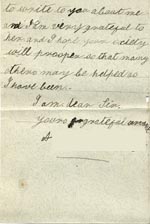 to write to you about me
and I am very grateful to
her and I hope your society
will prosper so that many
others may be helped as
I have been.
I am dear Sir,
Yours grateful
A